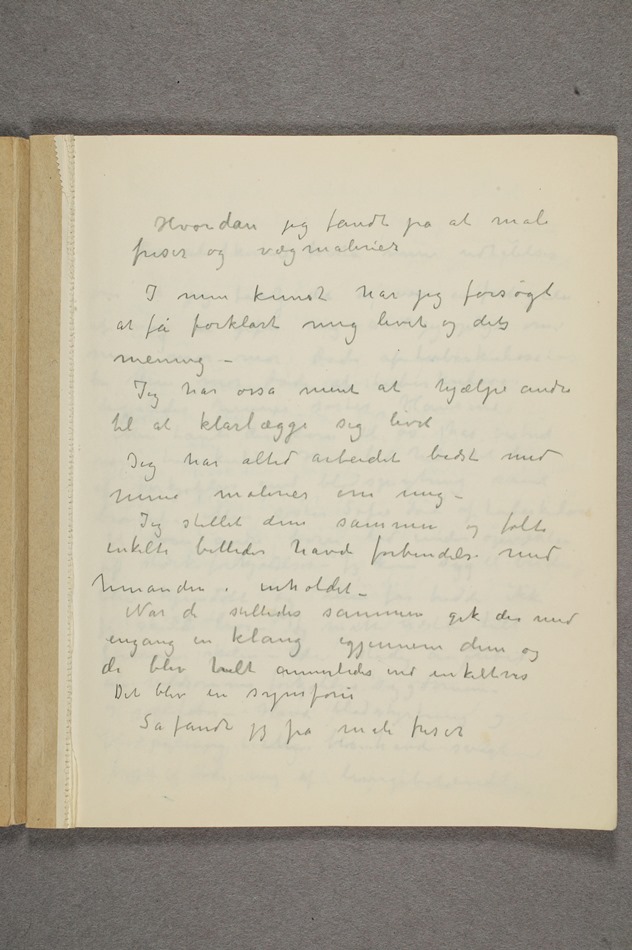 Hvordan jeg fandt på at male
friser og vægmalerier
I min kunst har jeg forsøgt
at få forklart mig livet og dets
mening –
Jeg har osså ment at hjælpe andre
til at klarlægge sig livet
Jeg har altid arbeidet bedst med
mine malerier om mig –
Jeg stillet dem sammen og følte
enkelte billeder havde forbindelse med
hinanden i inholdet –
Når de stilledes sammen gik der med
engang en klang igjennem dem og
de blev helt annerledes end enkeltvis
Det blev en symfoni
Så fandt jeg på male friser